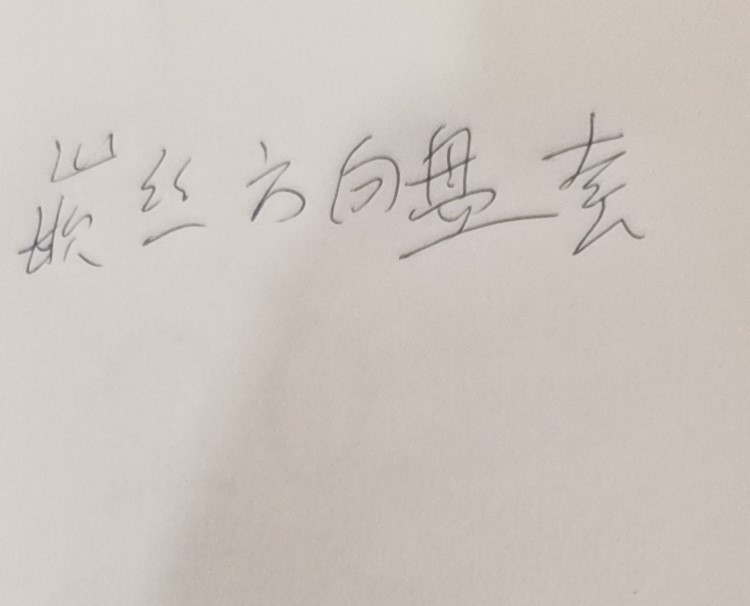 嵌丝方向盘套